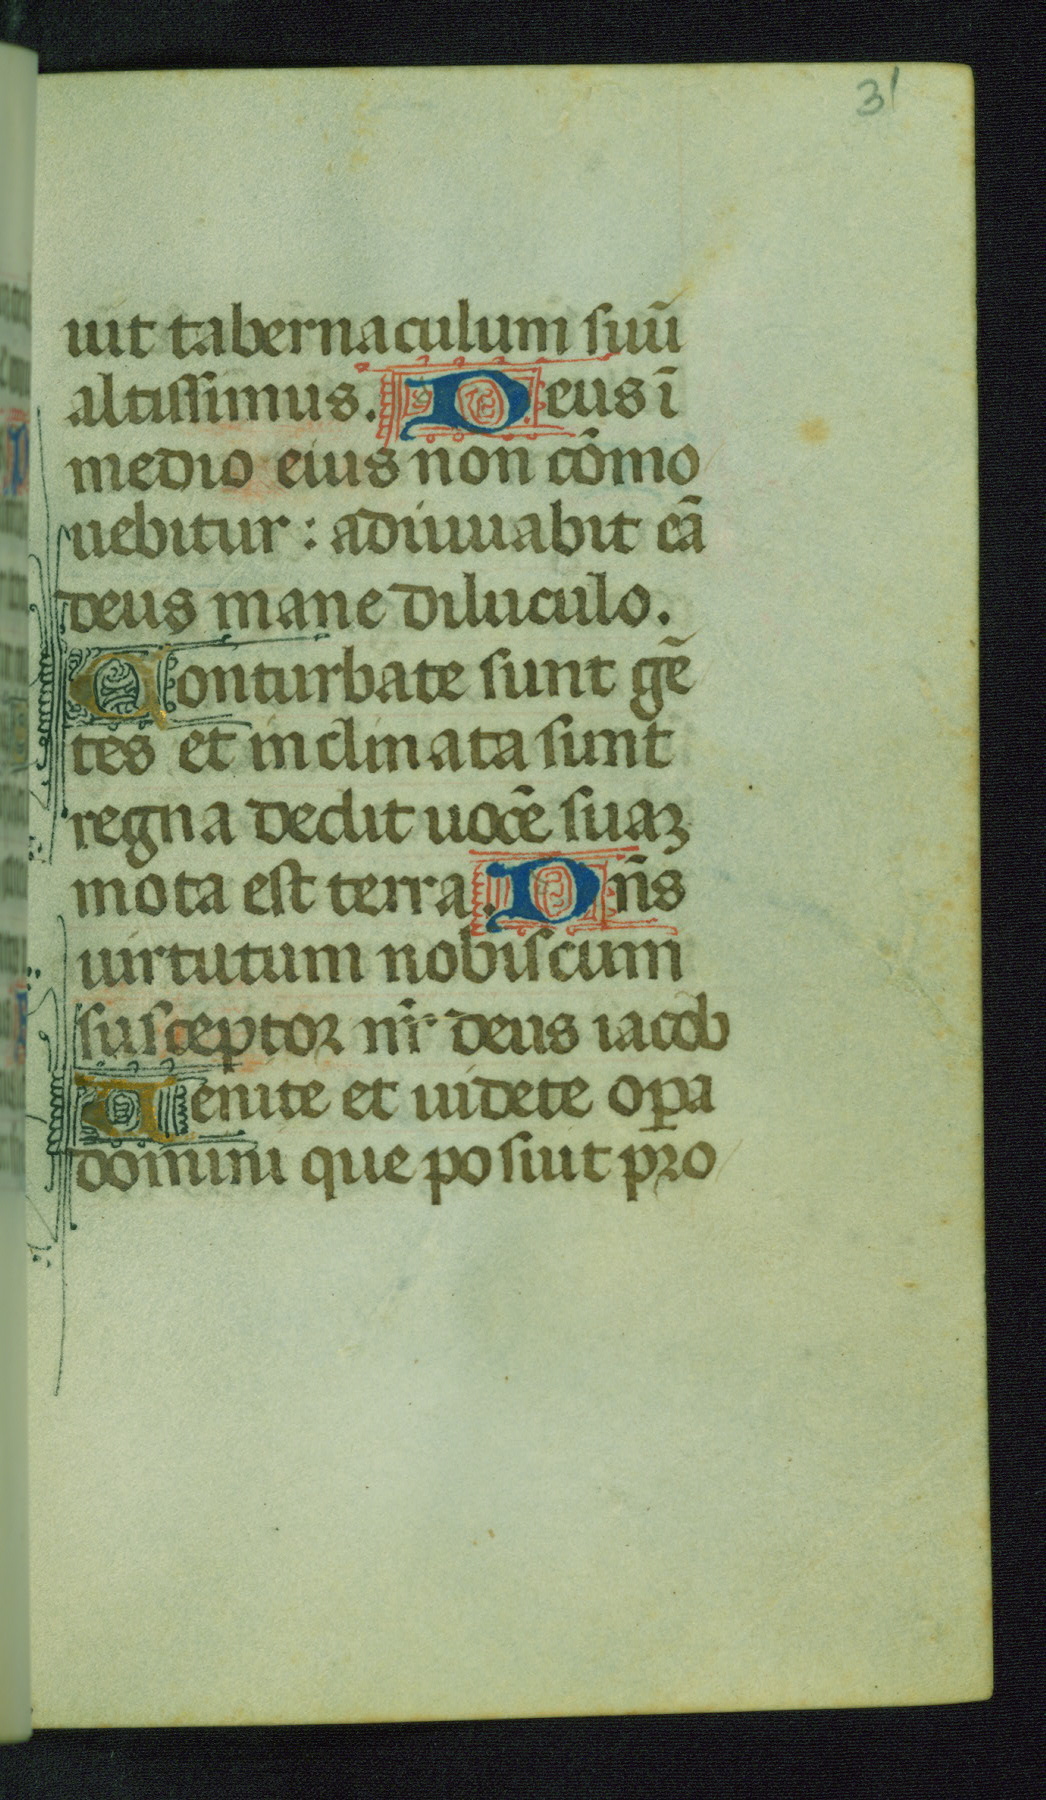 31
uit tabernaculum suū
altissimus. Deus ī
medio eius non cōmo
uebitur : adiuuabit eā
deus mane diluculo.
Conturbate sunt gē
tes et inclinata sunt
regna dedit uocē suaꝫ
mota est terra. Dn̄s
uirtutum nobiscum
susceptor nr̄ deus iacob
Uenite et uidete oꝑa
domini que posuit pro